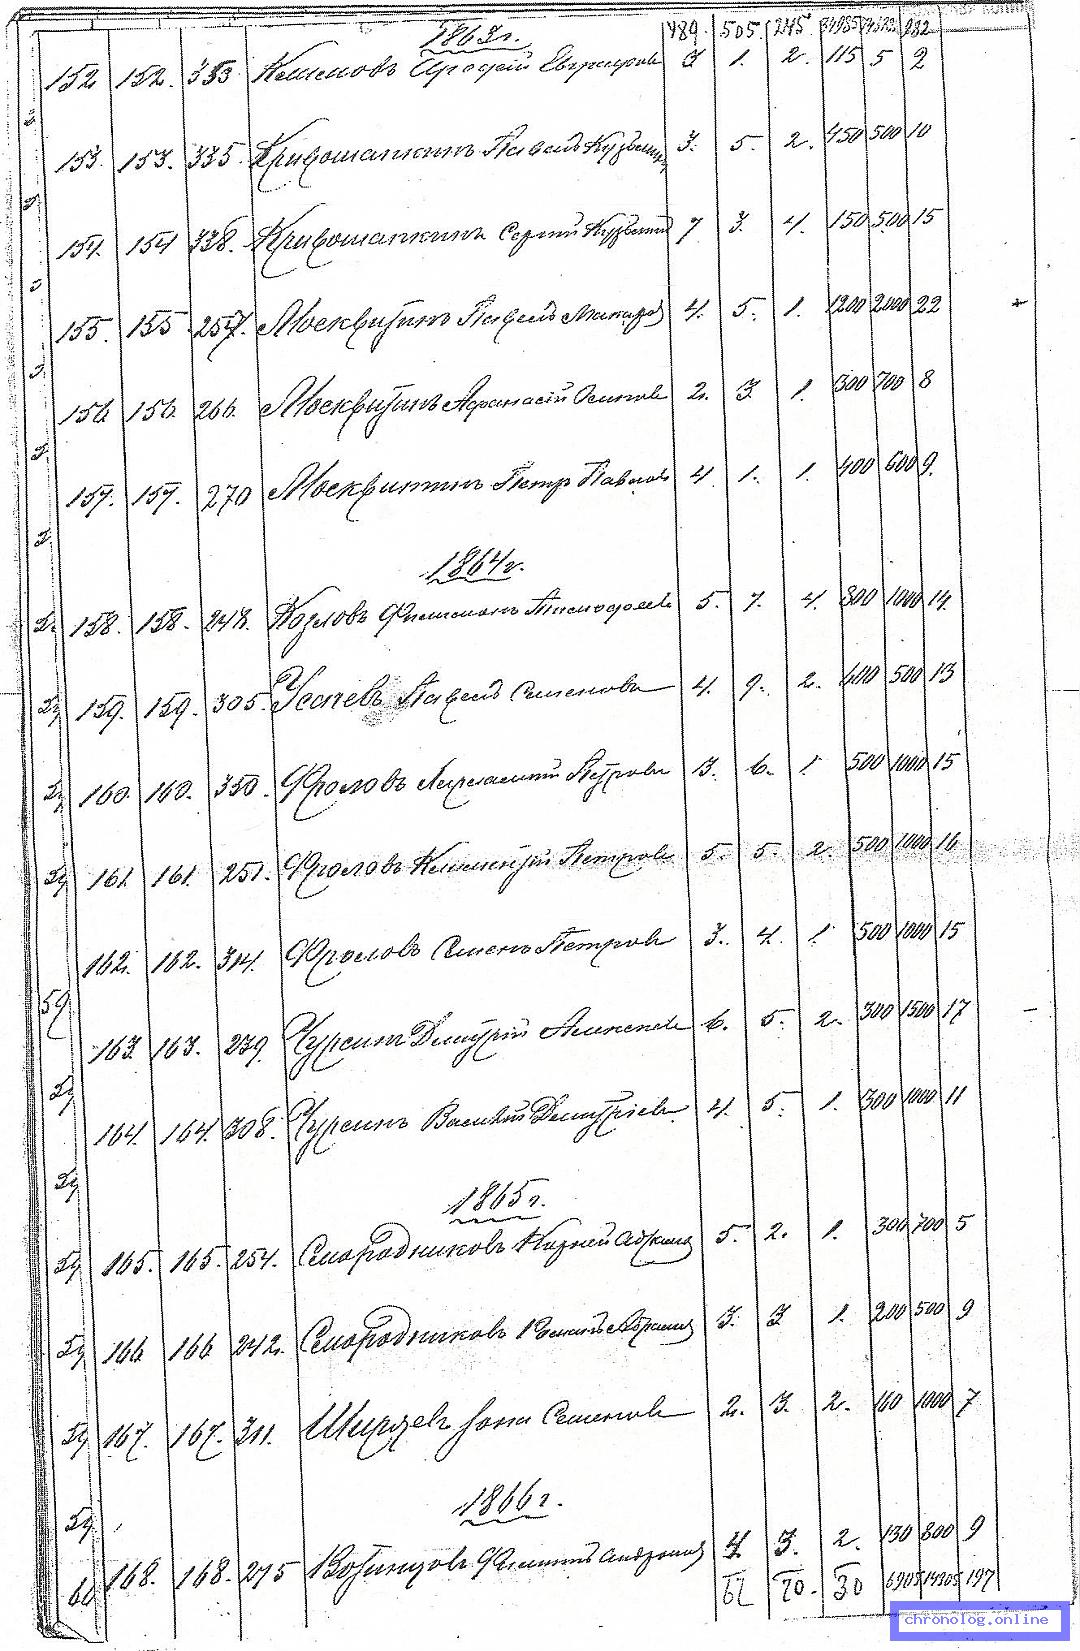 1863г. 489. 505. 245 232
152 152. 333 Клименовъ 3 1. 2. 115 5 2
153. 153. 335. Кривошапкинъ Павелъ Кузьмичъ 3. 5. 2. 450 500 10
154. 154 338. Кривошапкинъ Сергей Кузьмичъ 7 3. 4. 150 500 15
155. 155 257. Москвитинъ Павелъ Макаровъ 4. 5. 1. 1200 2000 22
156. 156. 266. Москвитинъ Афанасій Осиповъ 2. 3. 1. 300 700 8
157. 157. 270 Москвитинъ Петръ Павловъ 4 1. 1. 400 600 9.
1864г.
158. 158. 248. Козловъ Филимонъ Тимофеевъ 5. 7. 4. 300 1000 14.
159. 159. 305. Усачевъ Павелъ Семеновъ 4. 9. 2. 600 500 13
160. 160. 350. Фроловъ Петровъ 3. 6. 1. 500 1000 15
161. 161. 251. Фроловъ Климентій Петровъ 5. 5. 2. 500 1000 16
162. 162. 314. Фроловъ Семенъ Петровъ 3. 4. 1. 500 1000 15
163. 163. 239. Чурсинъ Дмитрій Алексеевъ 6. 5. 2. 300 1500 17
164. 164. 308. Чурсинъ Василій Дмитріевъ 4. 5. 1. 300 1000 11
1865г.
165. 165. 254. Смородниковъ Корней 5. 2. 1. 300 700 5
166. 166. 242. Смородниковъ 3. 3 1. 200 500 9
167. 167. 311. Ширяевъ Семеновъ 2. 3. 2. 160 1000 7
1866г.
168. 168. 275 Филиппъ 4. 3. 2. 130 800 9
62 70. 30 6905 14305 197
chronolog.online